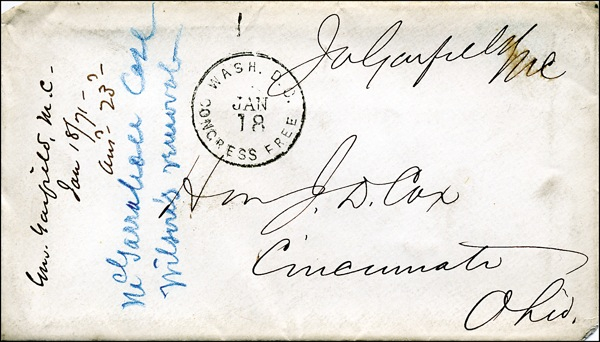 Ja Garfield MC
WASH. D.C.
JAN
18
CONGRESS FREE
Hon J. D. Cox
Cincinnati
Ohio.
Gen. Garfield, M.C.
Jan 18/71
Ans. 23
McGarrahan Case
Wilson's removal